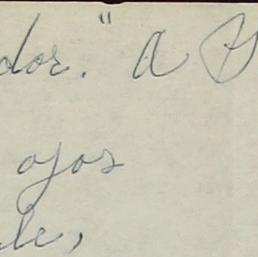 dor." a
ojos
le,